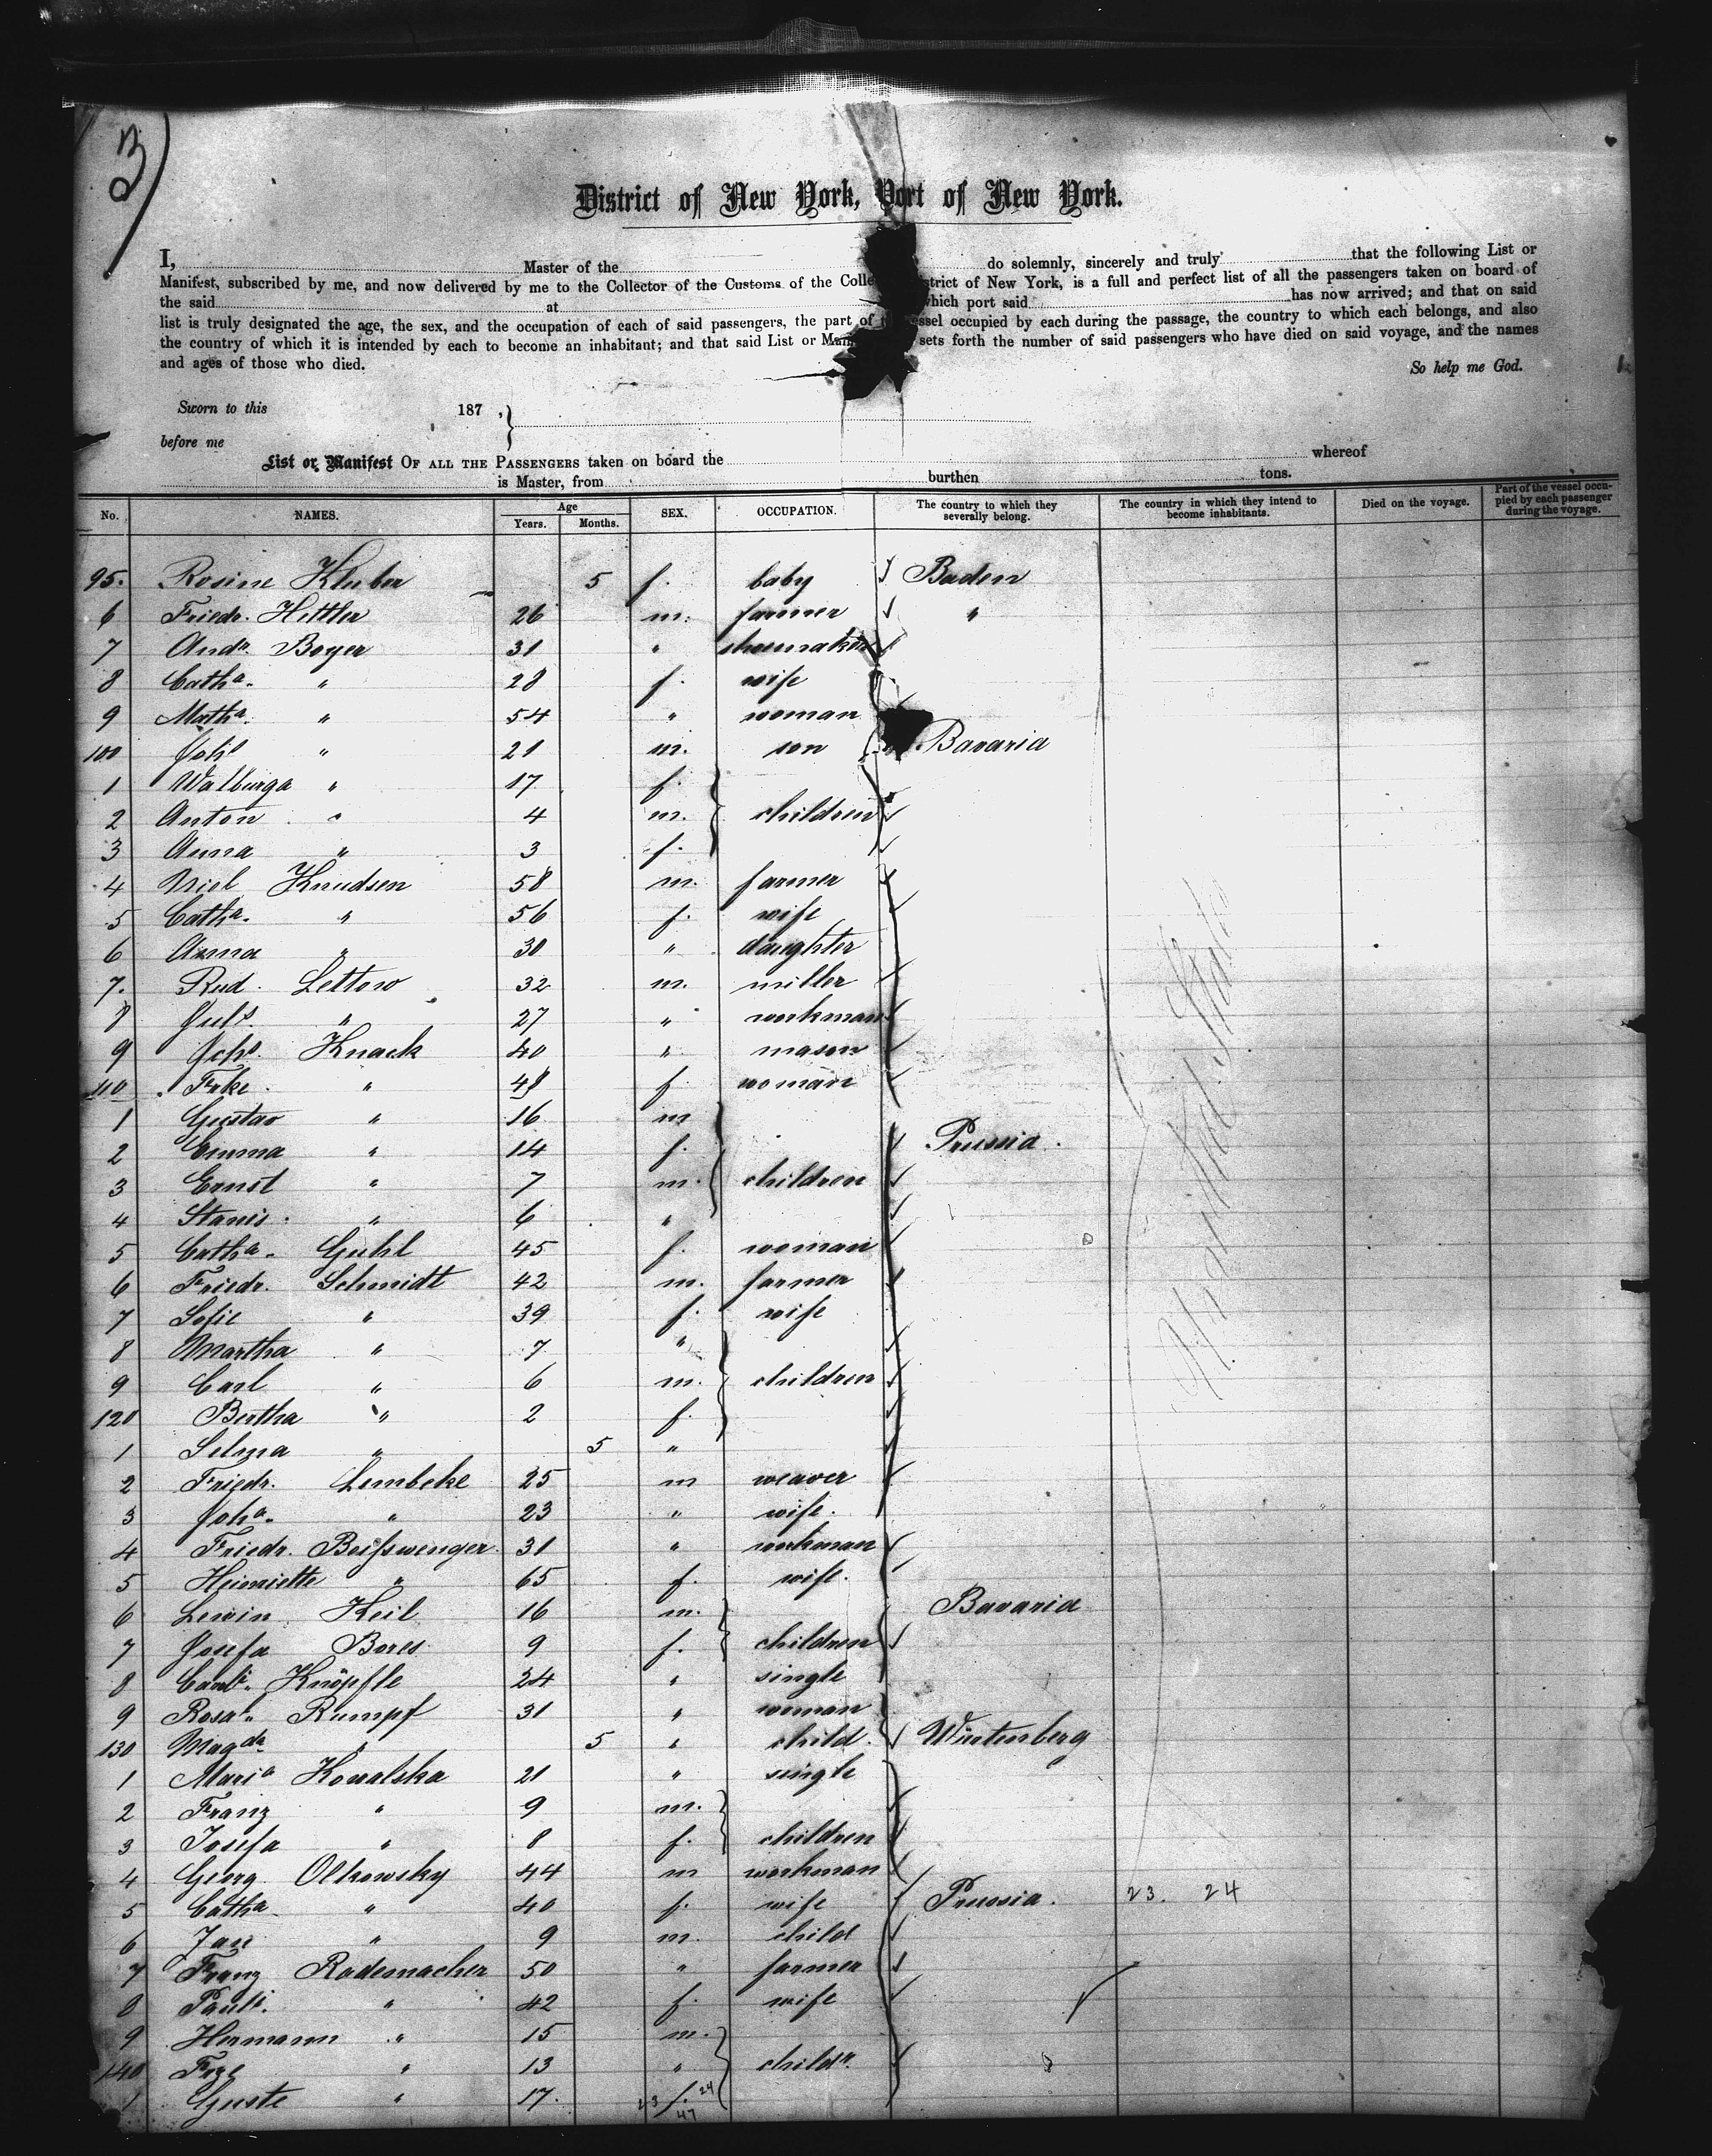 3)
District of New York, Port of New York.
I, Master of the do solemnly, sincerely and truly that the following List or
Manifest, subscribed by me, and now delivered by me to the Collector of the Customs of the Colle strict of New York, is a full and perfect list of all the passengers taken on board of
the said at which port said has now arrived; and that on said
list is truly designated the age, the sex, and the occupation of each of said passengers, the part of essel occupied by each during the passage, the country to which each belongs, and also
the country of which it is intended by each to become an inhabitant; and that said List or Mani sets forth the number of said passengers who have died on said voyage, and the names
and ages of those who died. So help me God.
Sworn to this 187 , }
before me
List or Manifest OF ALL THE PASSENGERS taken on board the whereof
is Master, from burthen tons.
No. NAMES. Age Years. Months. SEX. OCCUPATION. The country to which they severally belong. The country in which they intend to become inhabitants. Died on the voyage. Part of the vessel occupied by each passenger during the voyage.
95. Rosine Kluber 5 f. baby Baden
6 Friedr. Hettler 26 m. farmer "
7 Andr. Boyer 31 " shoemaker
8 Catha. " 28 f. wife
9 Matha. " 54 " woman
100 Johs " 21 m. son Bavaria
1 Walburga " 17 f.
2 Anton " 4 m. children
3 Anna " 3 f.
4 Niel Knudsen 58 m. farmer
5 Catha. " 56 f. wife
6 Anna " 30 " daughter
7. Rud. Lettow 32 m. miller
8 Juls. " 27 " workman
9 Johs. Knack 40 " mason
110 Frke. " 48 f. woman
1 Gustav " 16 m
2 Emma " 14 f. Prussia.
3 Ernst " 7 m. children
4 Stanis. " 6 "
5 Catha. Guhl 45 f. woman
6 Friedr. Schmidt 42 m. farmer
7 Sofie " 39 f. wife
8 Martha " 7 "
9 Carl " 6 m. children
120 Bertha " 2 f.
1 Selma " 5 "
2 Friedr. Lembcke 25 m weaver
3 Joha. " 23 " wife.
4 Friedr. Beißwenger 31 " workman
5 Heinriette " 65 f. wife.
6 Lewin Keil 16 m. Bavaria
7 Josefa Bores 9 f. children
8 Knöpfle 24 " single
9 Rosal. Rumpf 31 " woman
130 Magda " 5 " child. Würtenberg
1 Maria Kowalska 21 " single
2 Franz " 9 m.
3 Josefa " 8 f. children
4 Georg Olkowsky 44 m workman
5 Catha. " 40 f. wife Prussia. 23. 24
6 Jan " 9 m. child
7 Franz Rademacher 50 " farmer
8 Pauli. " 42 f. wife
9 Hermann " 15 m.
140 Frze " 13 " childn.
1 Guste " 17. f.
23 24
47
United States